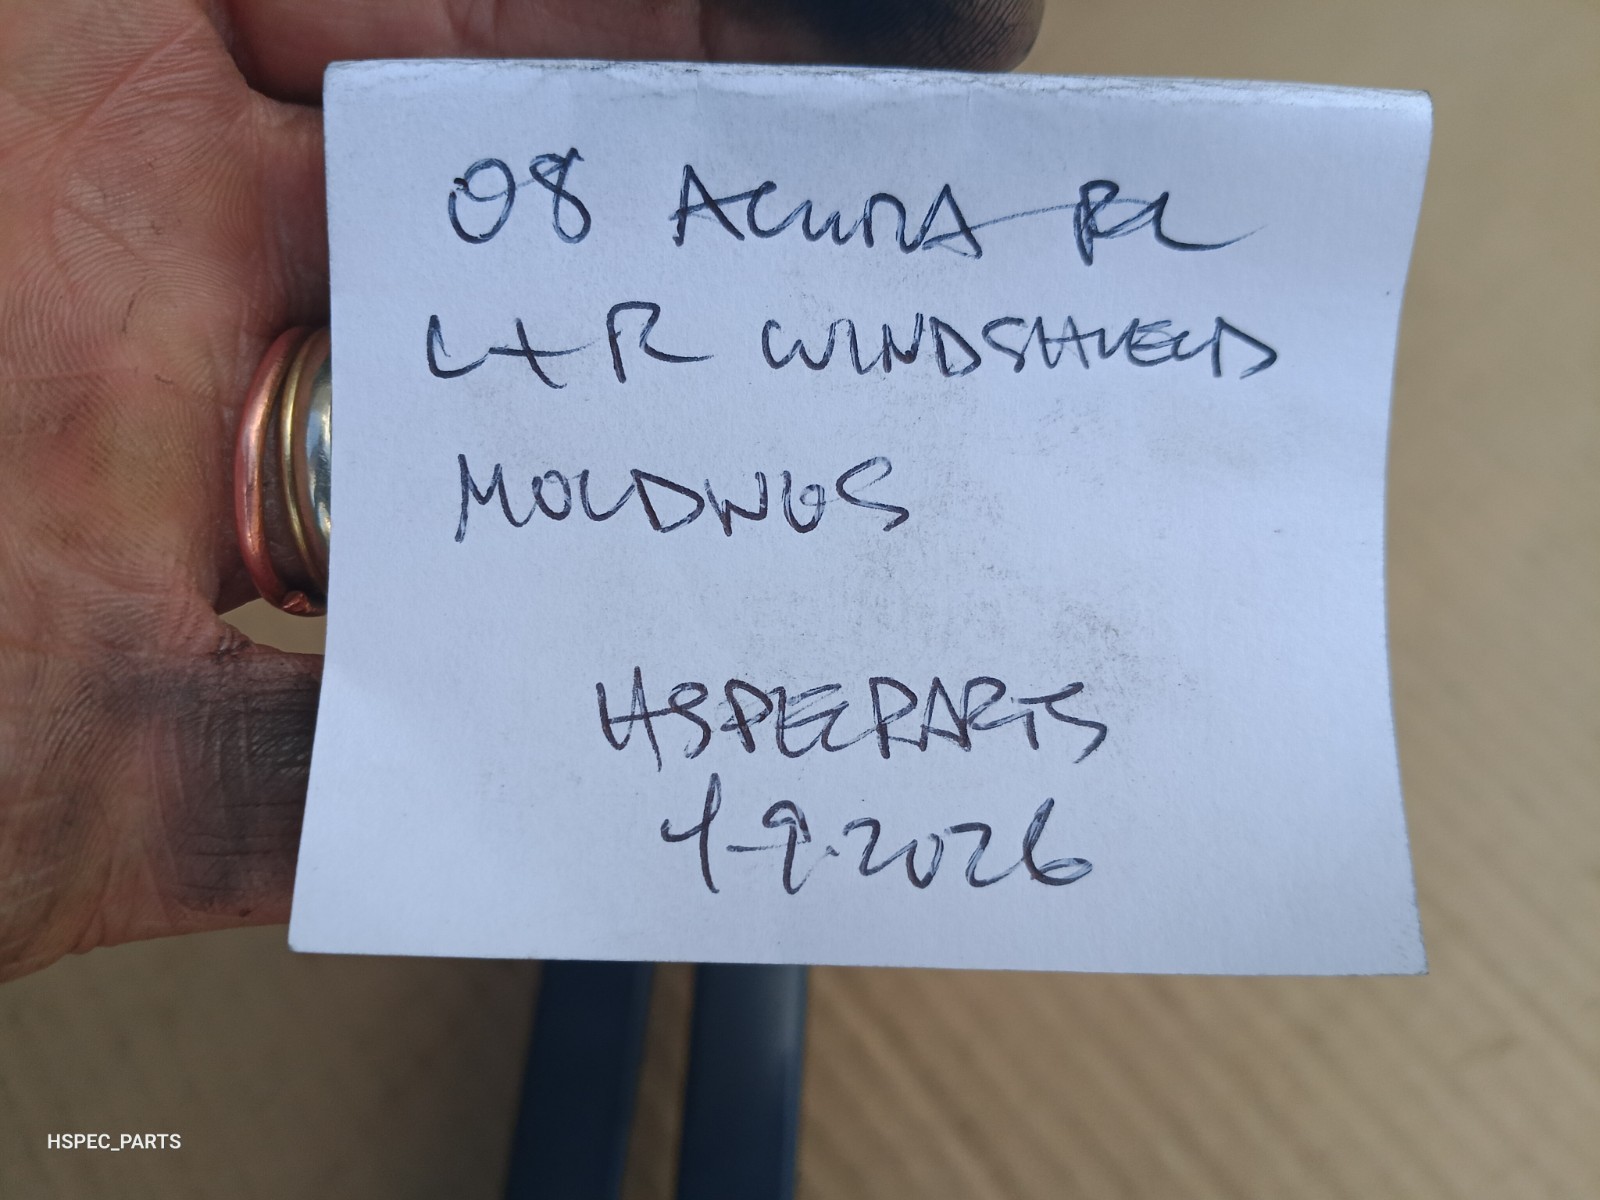 08 ACURA RL
L+R WINDSHIELD
MOLDINGS
HSPECPARTS
4-9-2026
HSPEC_PARTS